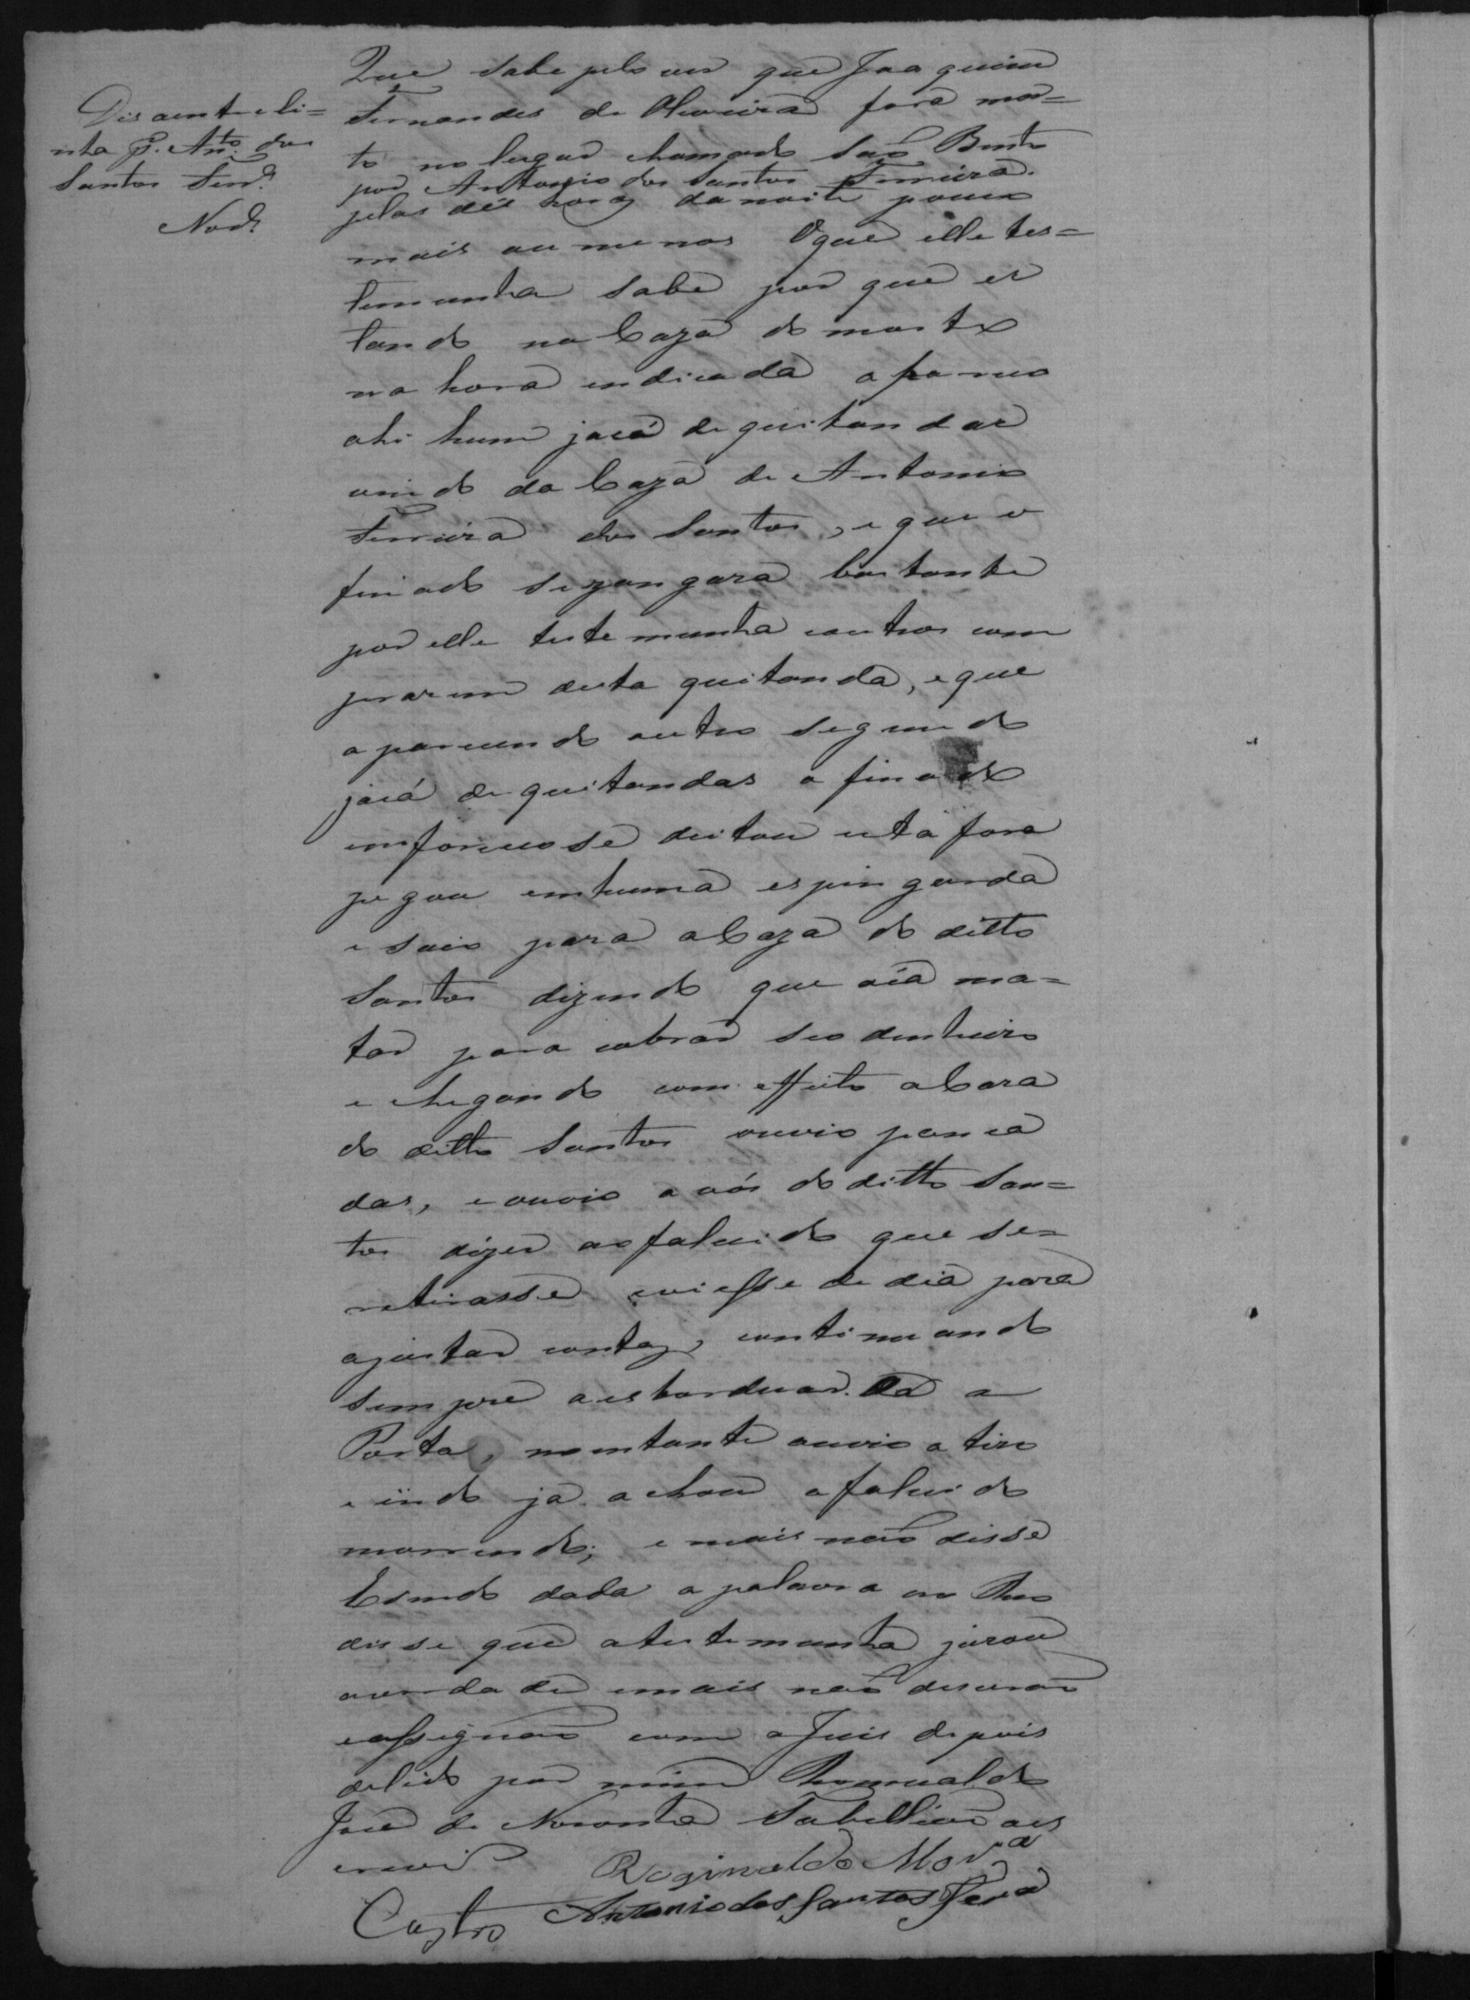 Que sabe pelo ver que Joaquim
Fernandes de Oliveira fora mor=
to no lugar chamado São Bento
por Antonio dos Santos Ferreira.
pelas dés horas da noite pouco
mais ou menos O que elle tes=
temunha sabe por que es
tando na Caza do morto
na hora indicada apareceo
ahi hum jacá de quitandas
vindo da Caza de Antonio
Ferreira dos Santos, e que o
finado se zangara bastante
por elle testemunha e outros com
prarem desta quitanda, e que
aparecendo outro segundo
jacá de quitandas o finado
enforeceose deitou esta fora
pegou em huma espingarda
e saio para a Caza do ditto
Santos dizendo que hia ma=
tar para cobrar seo dinheiro
e chegando com effeito a Casa
do ditto Santos ouvio panca
das, e ouvio a vós do ditto San=
tos dizer ao falecido que se=
retirasse e viesse de dia para
ajustar contas, continuando
sempre a esbordoar a
Porta, no entanto ouvio o tiro
e indo já achou o falecido
morrendo; e mais não disse
E sendo dada a palavra ao Reo
disse que a testemunha jurou
a verdade e mais não disserão
e assignão com o Juis depois
de lido por mim Romualdo
José de Noronha Tabellião o es
crevi
Reginaldo Mor.ª
Castro Antonio dos Santos Ferrª
Dis a entreli=
nha p. Anto. dos
Santos Ferrª
Norª